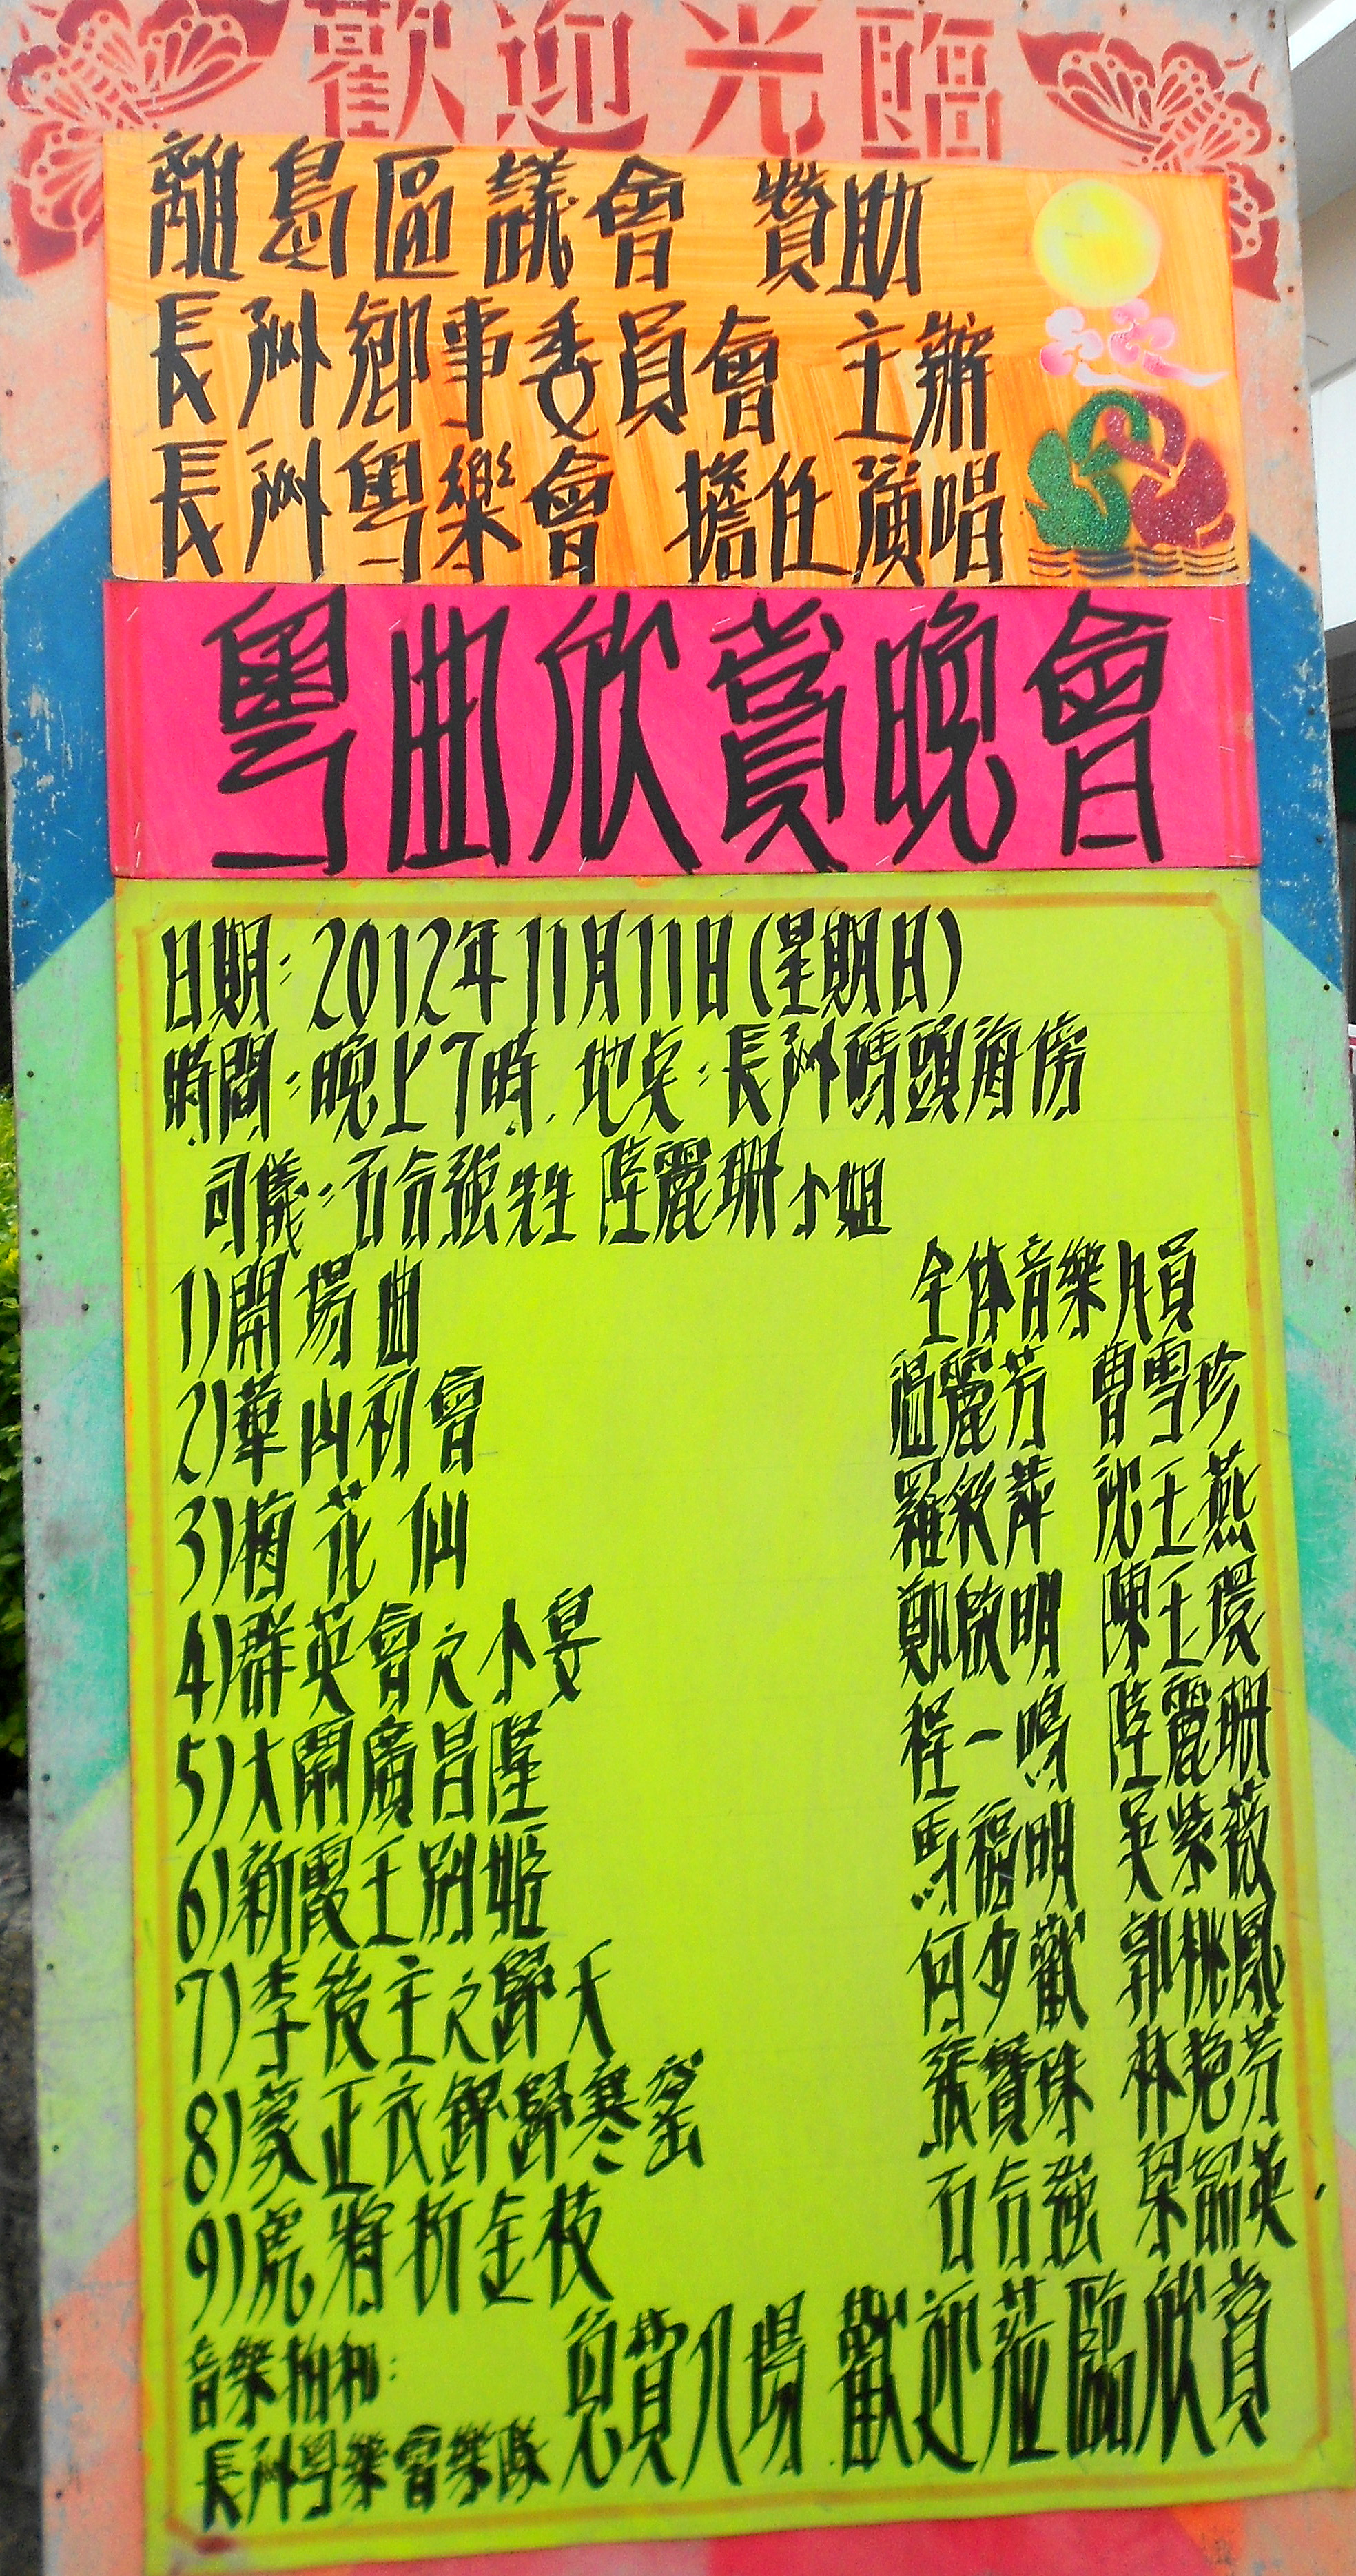 歡迎光臨
離島區議會 贊助
長洲鄉事委員會 主辦
長洲粵樂會 擔任演唱
粵曲欣賞晚會
日期：2012年11月11日(星期日)
時間：晚上7時．地點：長洲碼頭海傍
司儀：石合強先生 陸麗珊小姐
1)開場曲 全体音樂人員
2)華山初會 溫麗芳 曹雪珍
3)梅花仙 羅秋萍 沈玉燕
4)群英會之小宴 鄭啟明 陳玉環
5)大鬧廣昌隆 程一鳴 陸麗珊
6)新霸王別姬 馬福明 吳紫薇
7)李後主之歸天 何少歡 郭桃鳳
8)蒙正衣錦歸寒窰 張寶珠 林艷芳
9)虎將折金枝 石合強 梁韶英
音樂拍和：
長洲粵樂會樂隊
免費入場 歡迎蒞臨欣賞